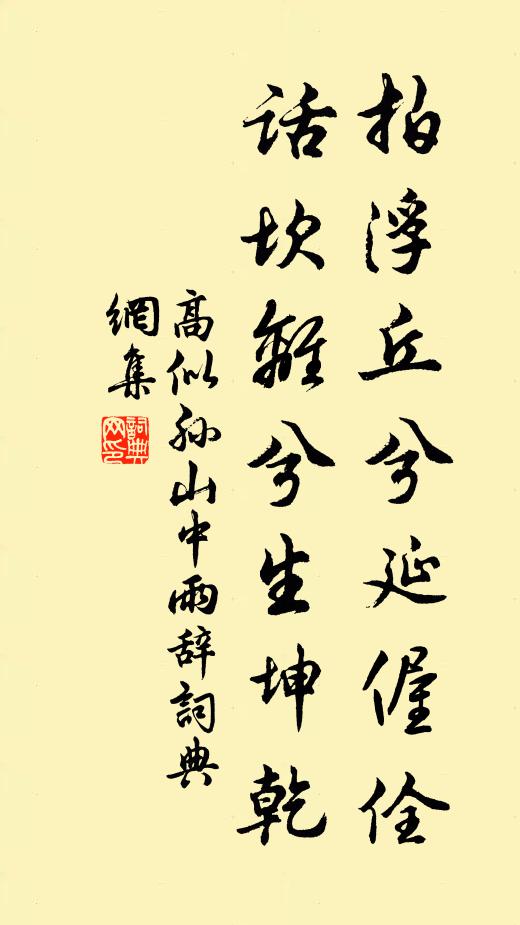 拍浮丘兮延偓佺
話坎離兮生坤乾
高似孙山中雨辞詞典
網集
詞典
网印